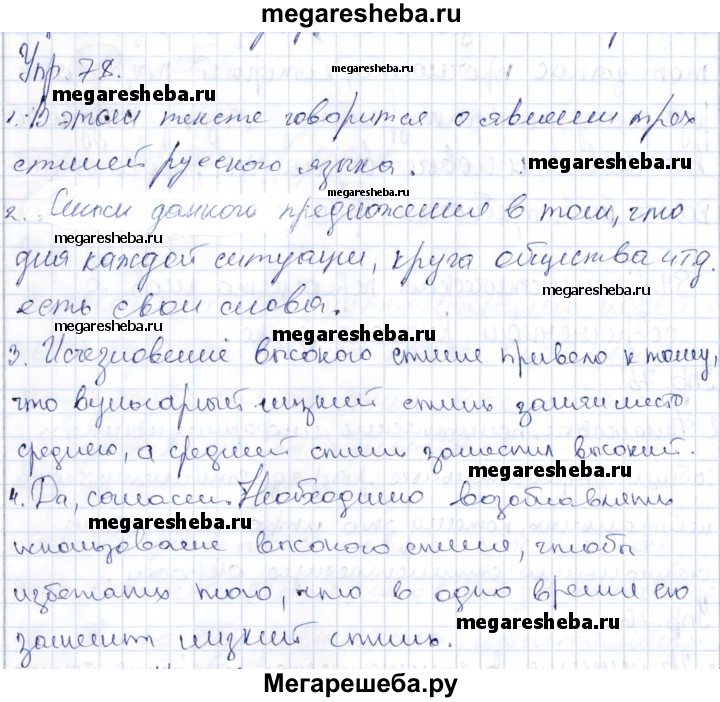 megaresheba.ru
Упр. 78.
megaresheba.ru
megaresheba.ru
1. В этом тексте говорится о явлении трех
стилей русского языка.
megaresheba.ru
2. Смысл данного предложения в том, что
megaresheba.ru
для каждой ситуации, круга общества и т.д.
megaresheba.ru
есть свои слова.
megaresheba.ru
megaresheba.ru
3. Исчезновение высокого стиля привело к тому,
что вульгарный низкий стиль занял место
среднего, а средний стиль заместил высокий.
megaresheba.ru
4. Да, согласен. Необходимо возобновлять
megaresheba.ru
использование высокого стиля, чтобы
избежать того, что в одно время его
megaresheba.ru
заменит низкий стиль.
Мегарешеба.ру